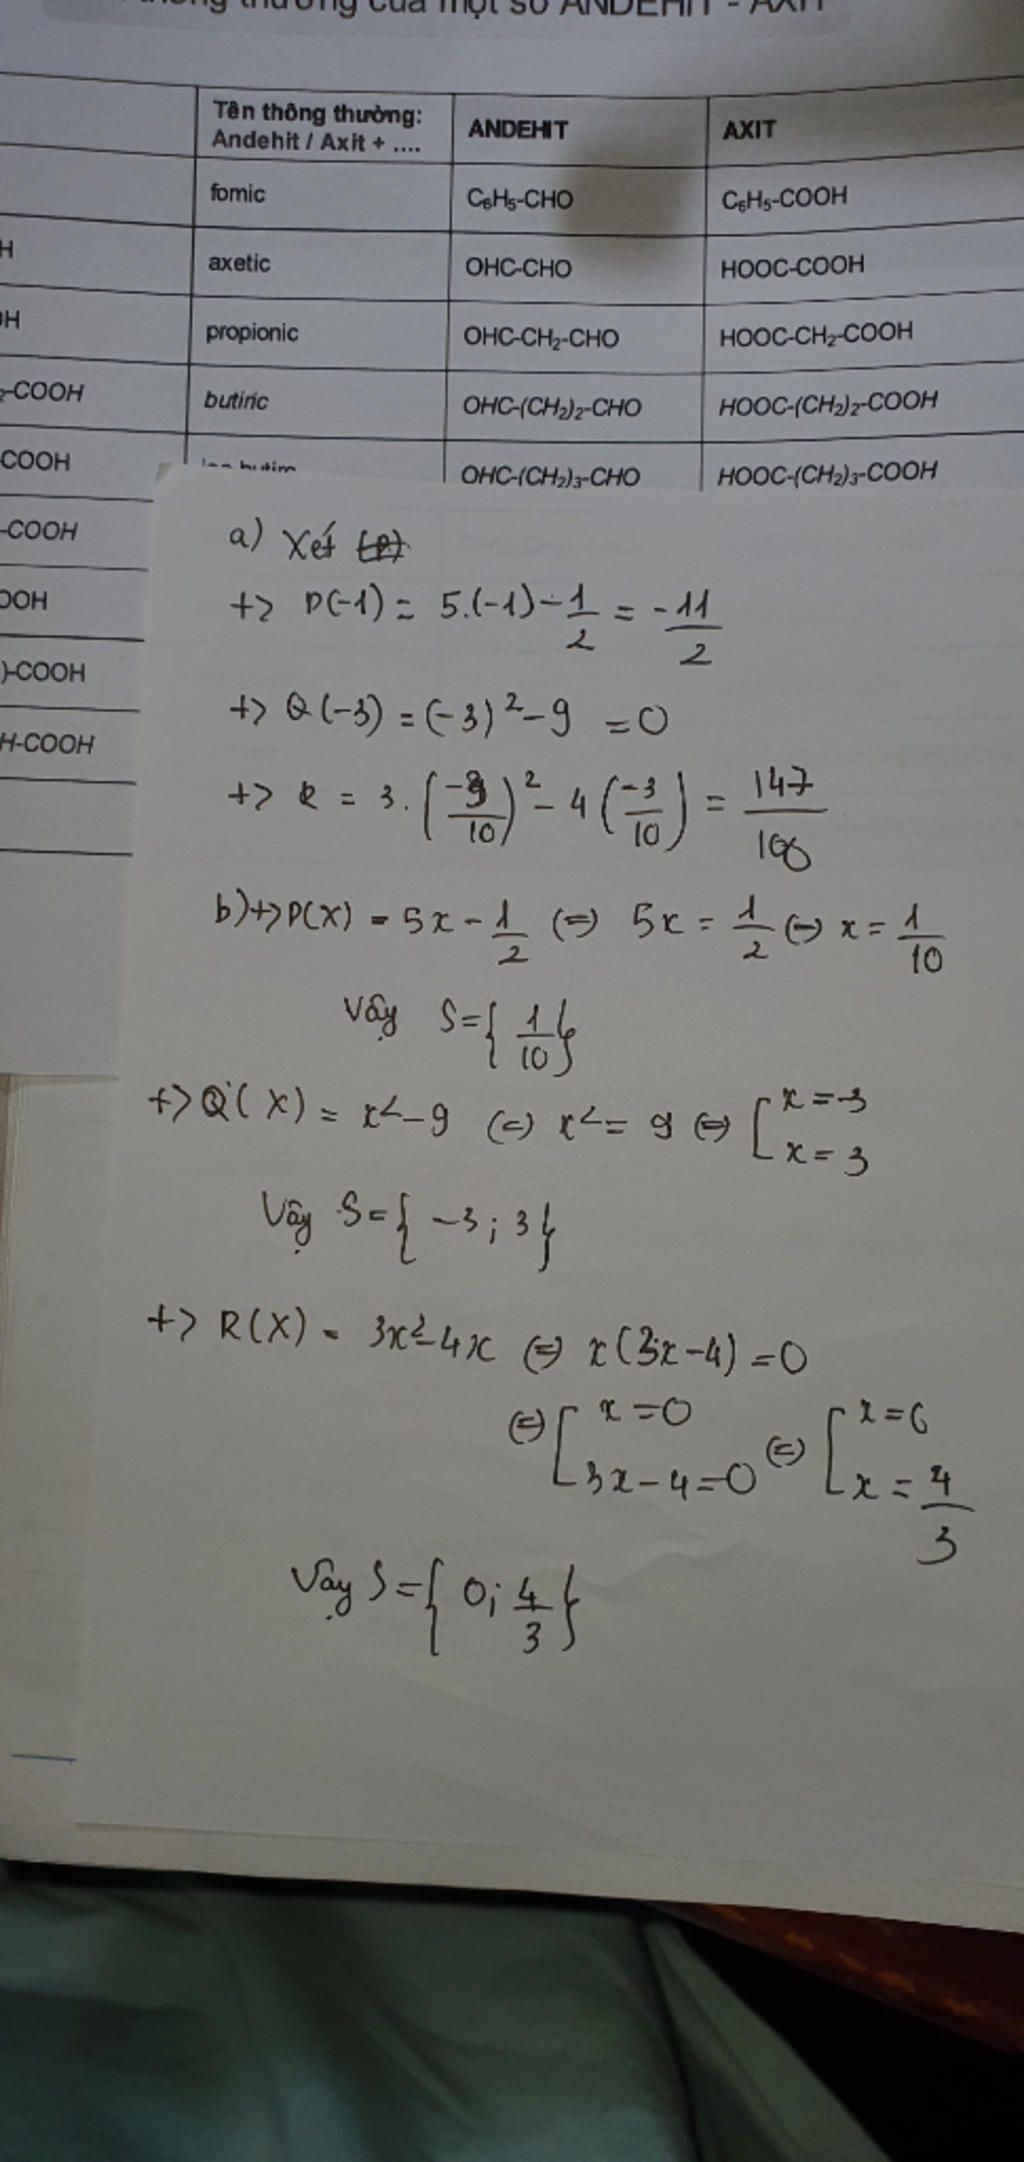 thông thường của một số ANDEHIT - AXIT
Tên thông thường: Andehit / Axit + .... ANDEHIT AXIT
fomic C₆H₅-CHO C₆H₅-COOH
H axetic OHC-CHO HOOC-COOH
OH propionic OHC-CH₂-CHO HOOC-CH₂-COOH
₂-COOH butiric OHC-(CH₂)₂-CHO HOOC-(CH₂)₂-COOH
COOH OHC-(CH₂)₃-CHO HOOC-(CH₂)₃-COOH
-COOH
OOH
)-COOH
H-COOH
a) Xét (P)
+> P(-1) = 5.(-1) - 1/2 = -11/2
+> Q(-3) = (-3)² - 9 = 0
+> R = 3.(-3/10)² - 4(-3/10) = 147/100
b) +> P(X) = 5x - 1/2 (=) 5x = 1/2 (=) x = 1/10
Vậy S = { 1/10 }
+> Q(X) = x² - 9 (=) x² = 9 (=) [ x = -3
x = 3
Vậy S = { -3 ; 3 }
+> R(X) = 3x² - 4x (=) x(3x - 4) = 0
(=) [ x = 0 (=) [ x = 0
3x - 4 = 0 x = 4/3
Vậy S = { 0; 4/3 }